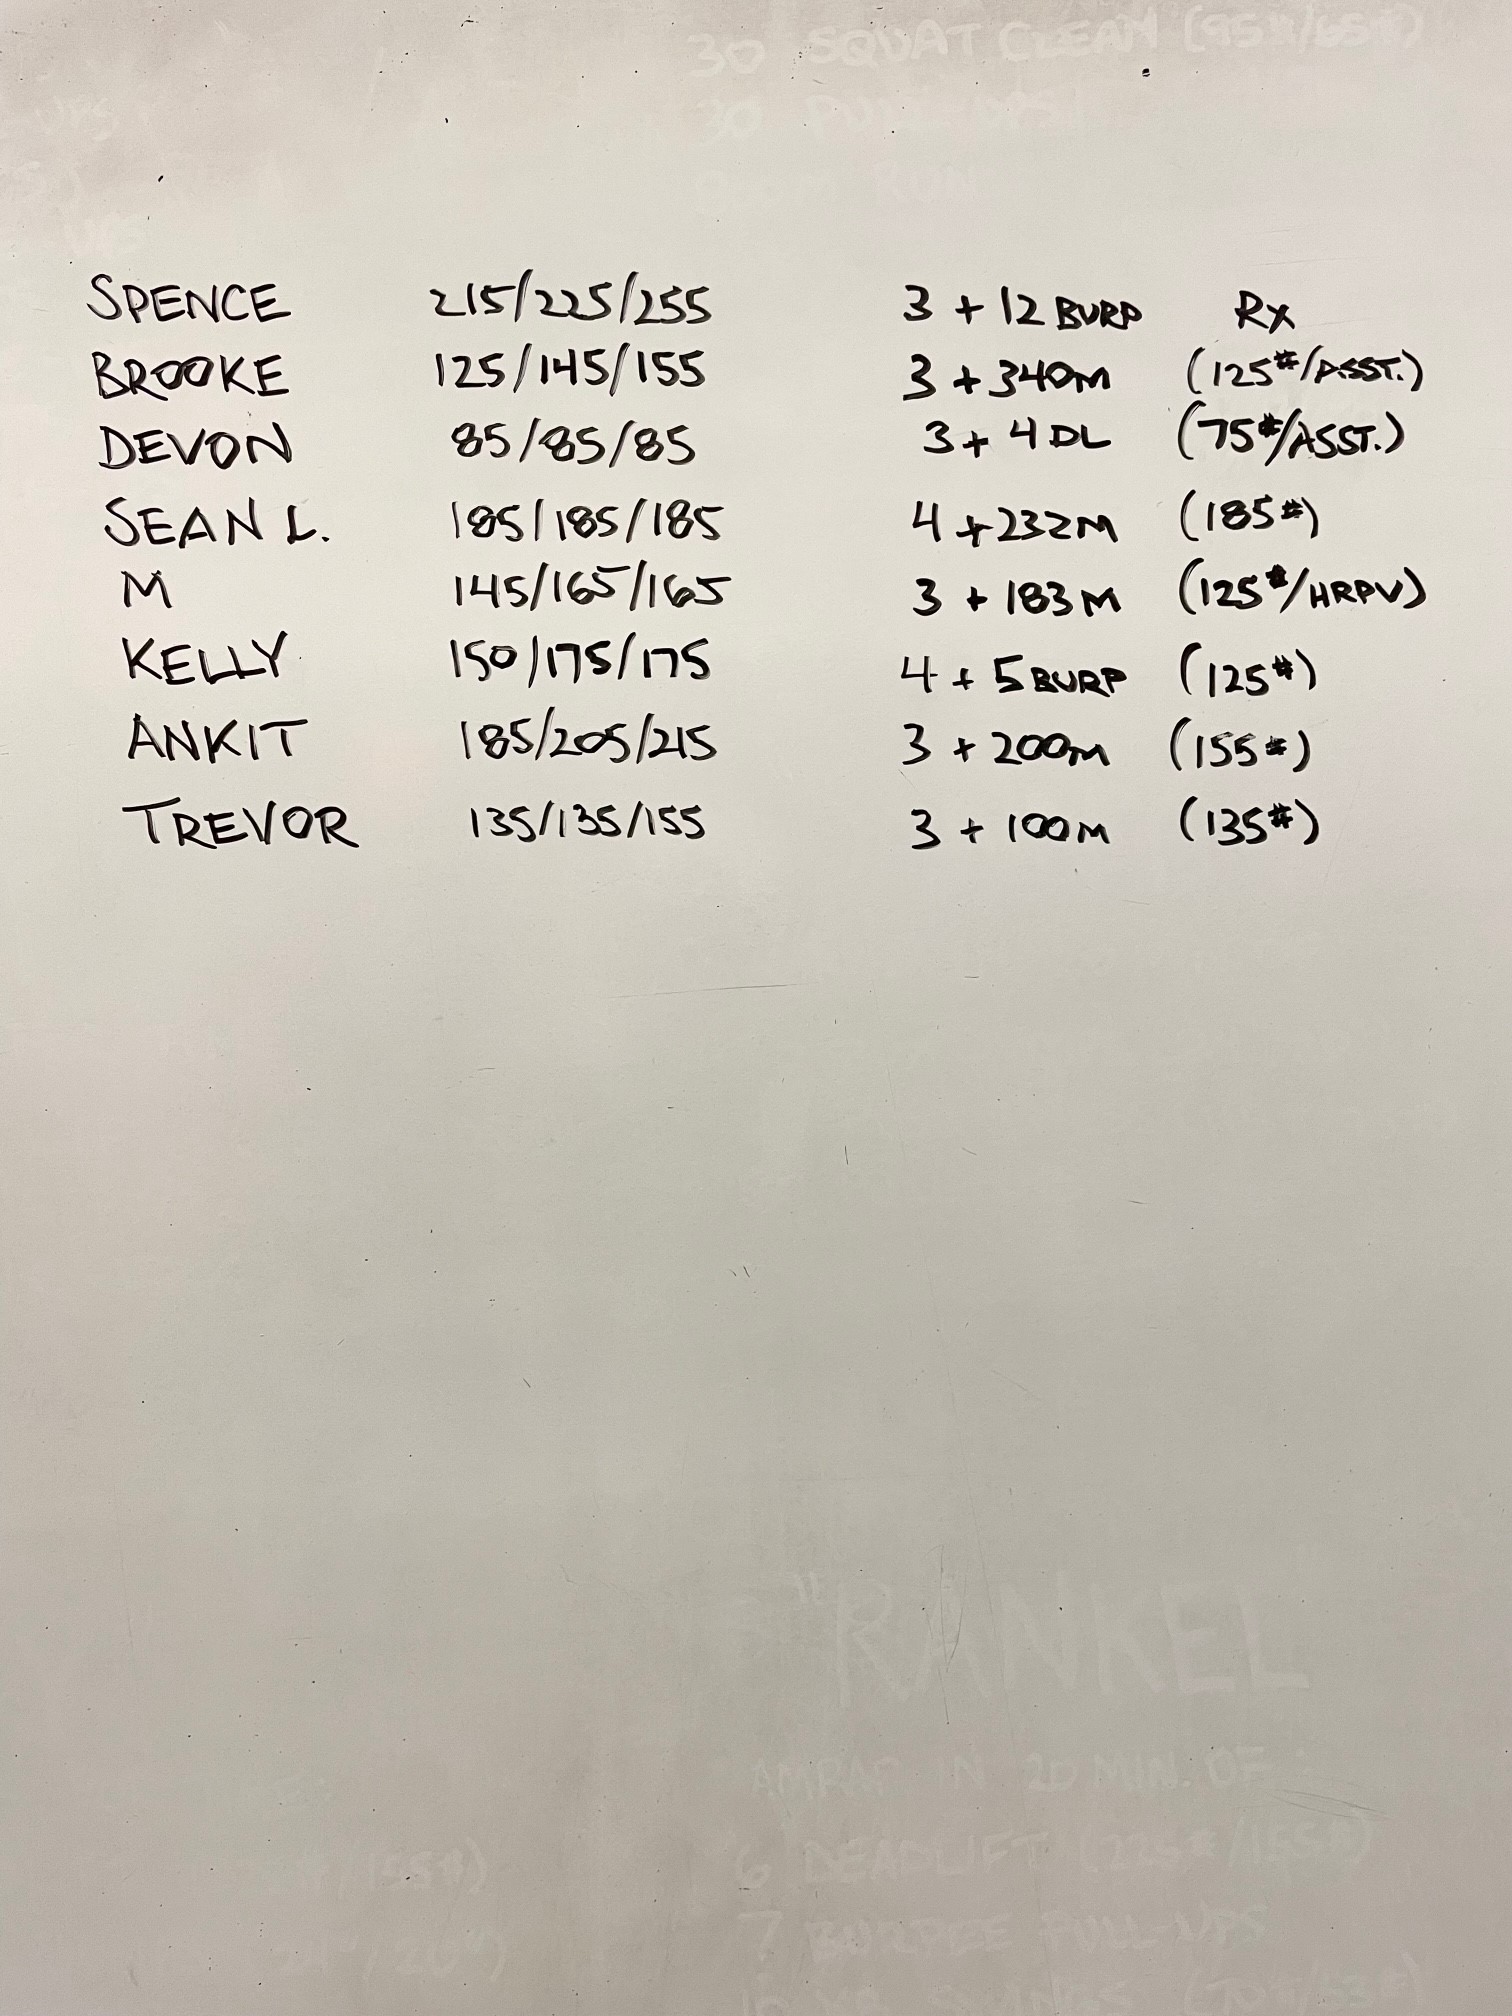 30 SQUAT CLEAN (95#/65#)
30 PULL-UPS
800M RUN
UPS
SPENCE 215/225/255 3 + 12 BURP Rx
BROOKE 125/145/155 3 + 340M (125#/ASST.)
DEVON 85/85/85 3 + 4 DL (75#/ASST.)
SEAN L. 185/185/185 4 + 232M (185#)
M 145/165/165 3 + 183M (125#/HRPU)
KELLY 150/175/175 4 + 5 BURP (125#)
ANKIT 185/205/215 3 + 200M (155#)
TREVOR 135/135/155 3 + 100M (135#)
"RANKEL"
AMRAP IN 20 MIN. OF:
6 DEADLIFT (225#/155#)
/155#)
7 BURPEE PULL-UPS
24"/20")
10 KB SWINGS (70#/53#)